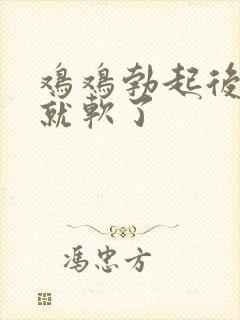 鸡鸡勃起後
就軟了
馮忠方